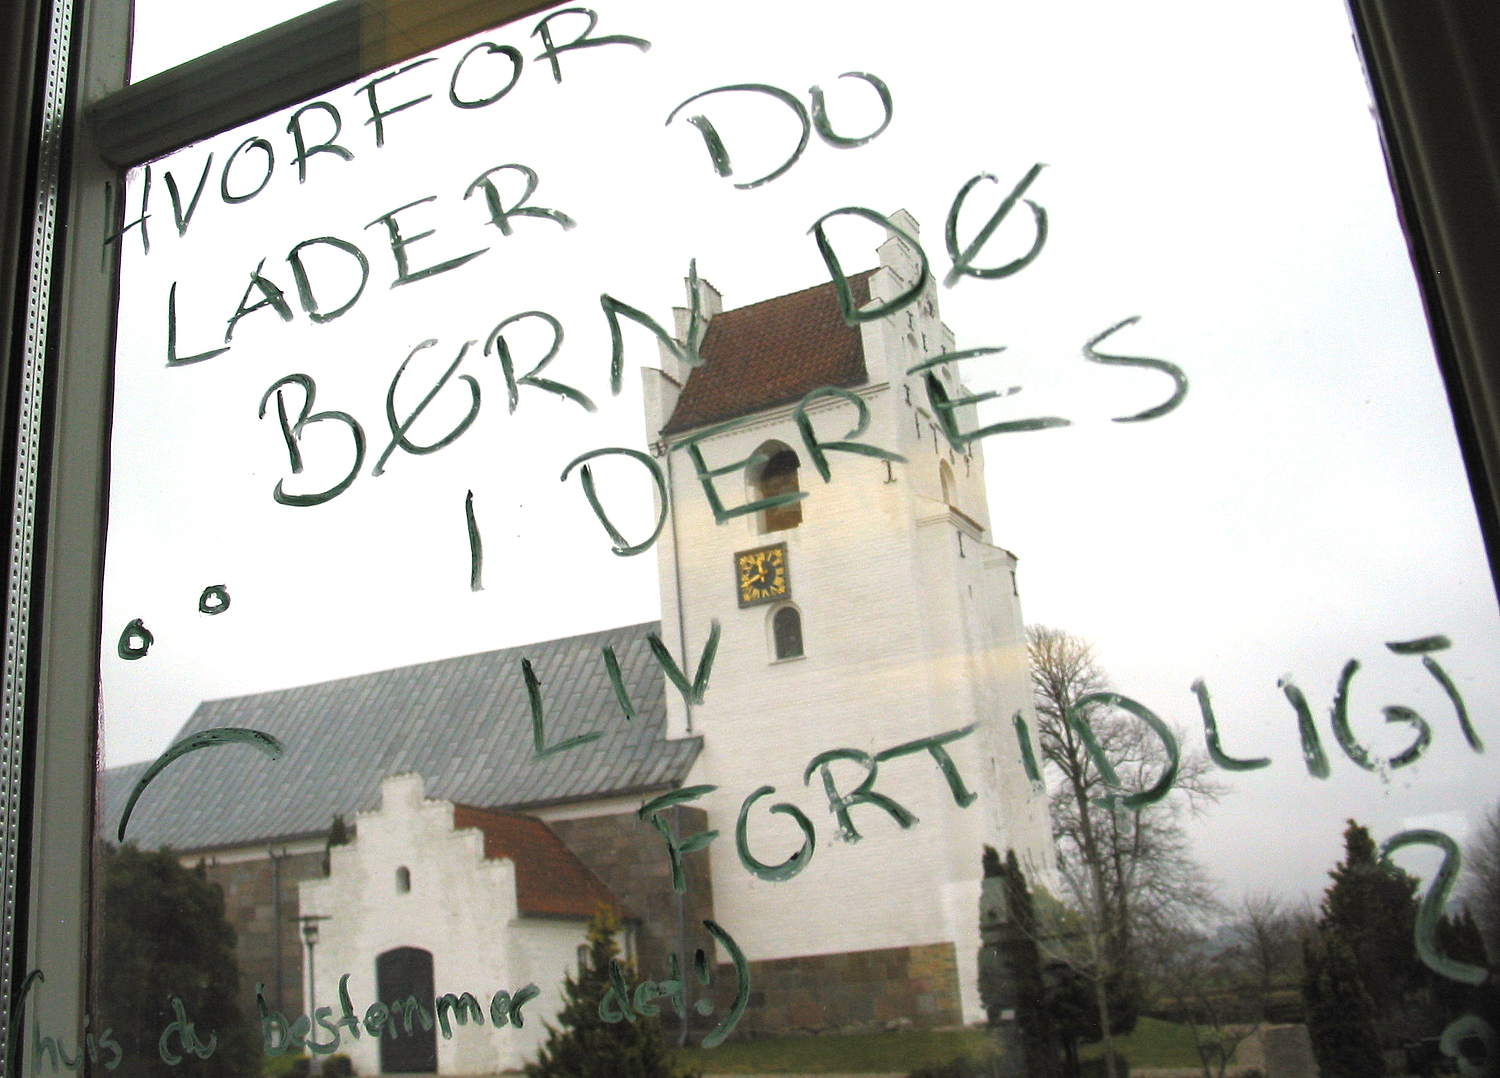 HVORFOR
LADER DU
BØRN DØ
I DERES
LIV
FORTIDLIGT
?
(hvis du bestemmer det!)